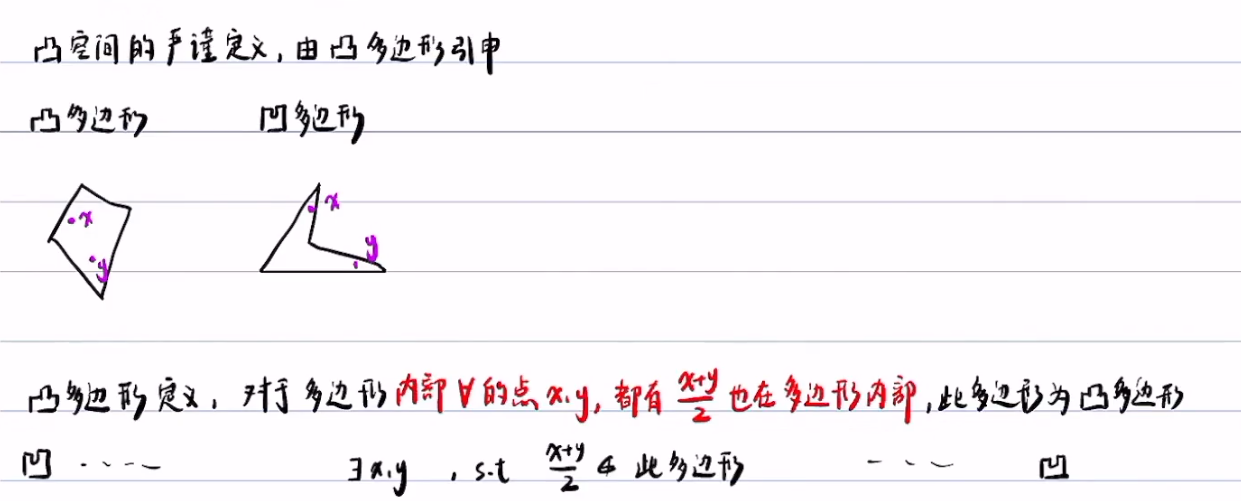 凸空间的严谨定义,由凸多边形引申
凸多边形 凹多边形
x x
y y
凸多边形定义,对于多边形内部∀的点x,y,都有 x+y/2 也在多边形内部,此多边形为凸多边形
凹 ····— ∃x,y , s.t x+y/2 ∉ 此多边形 --- 凹